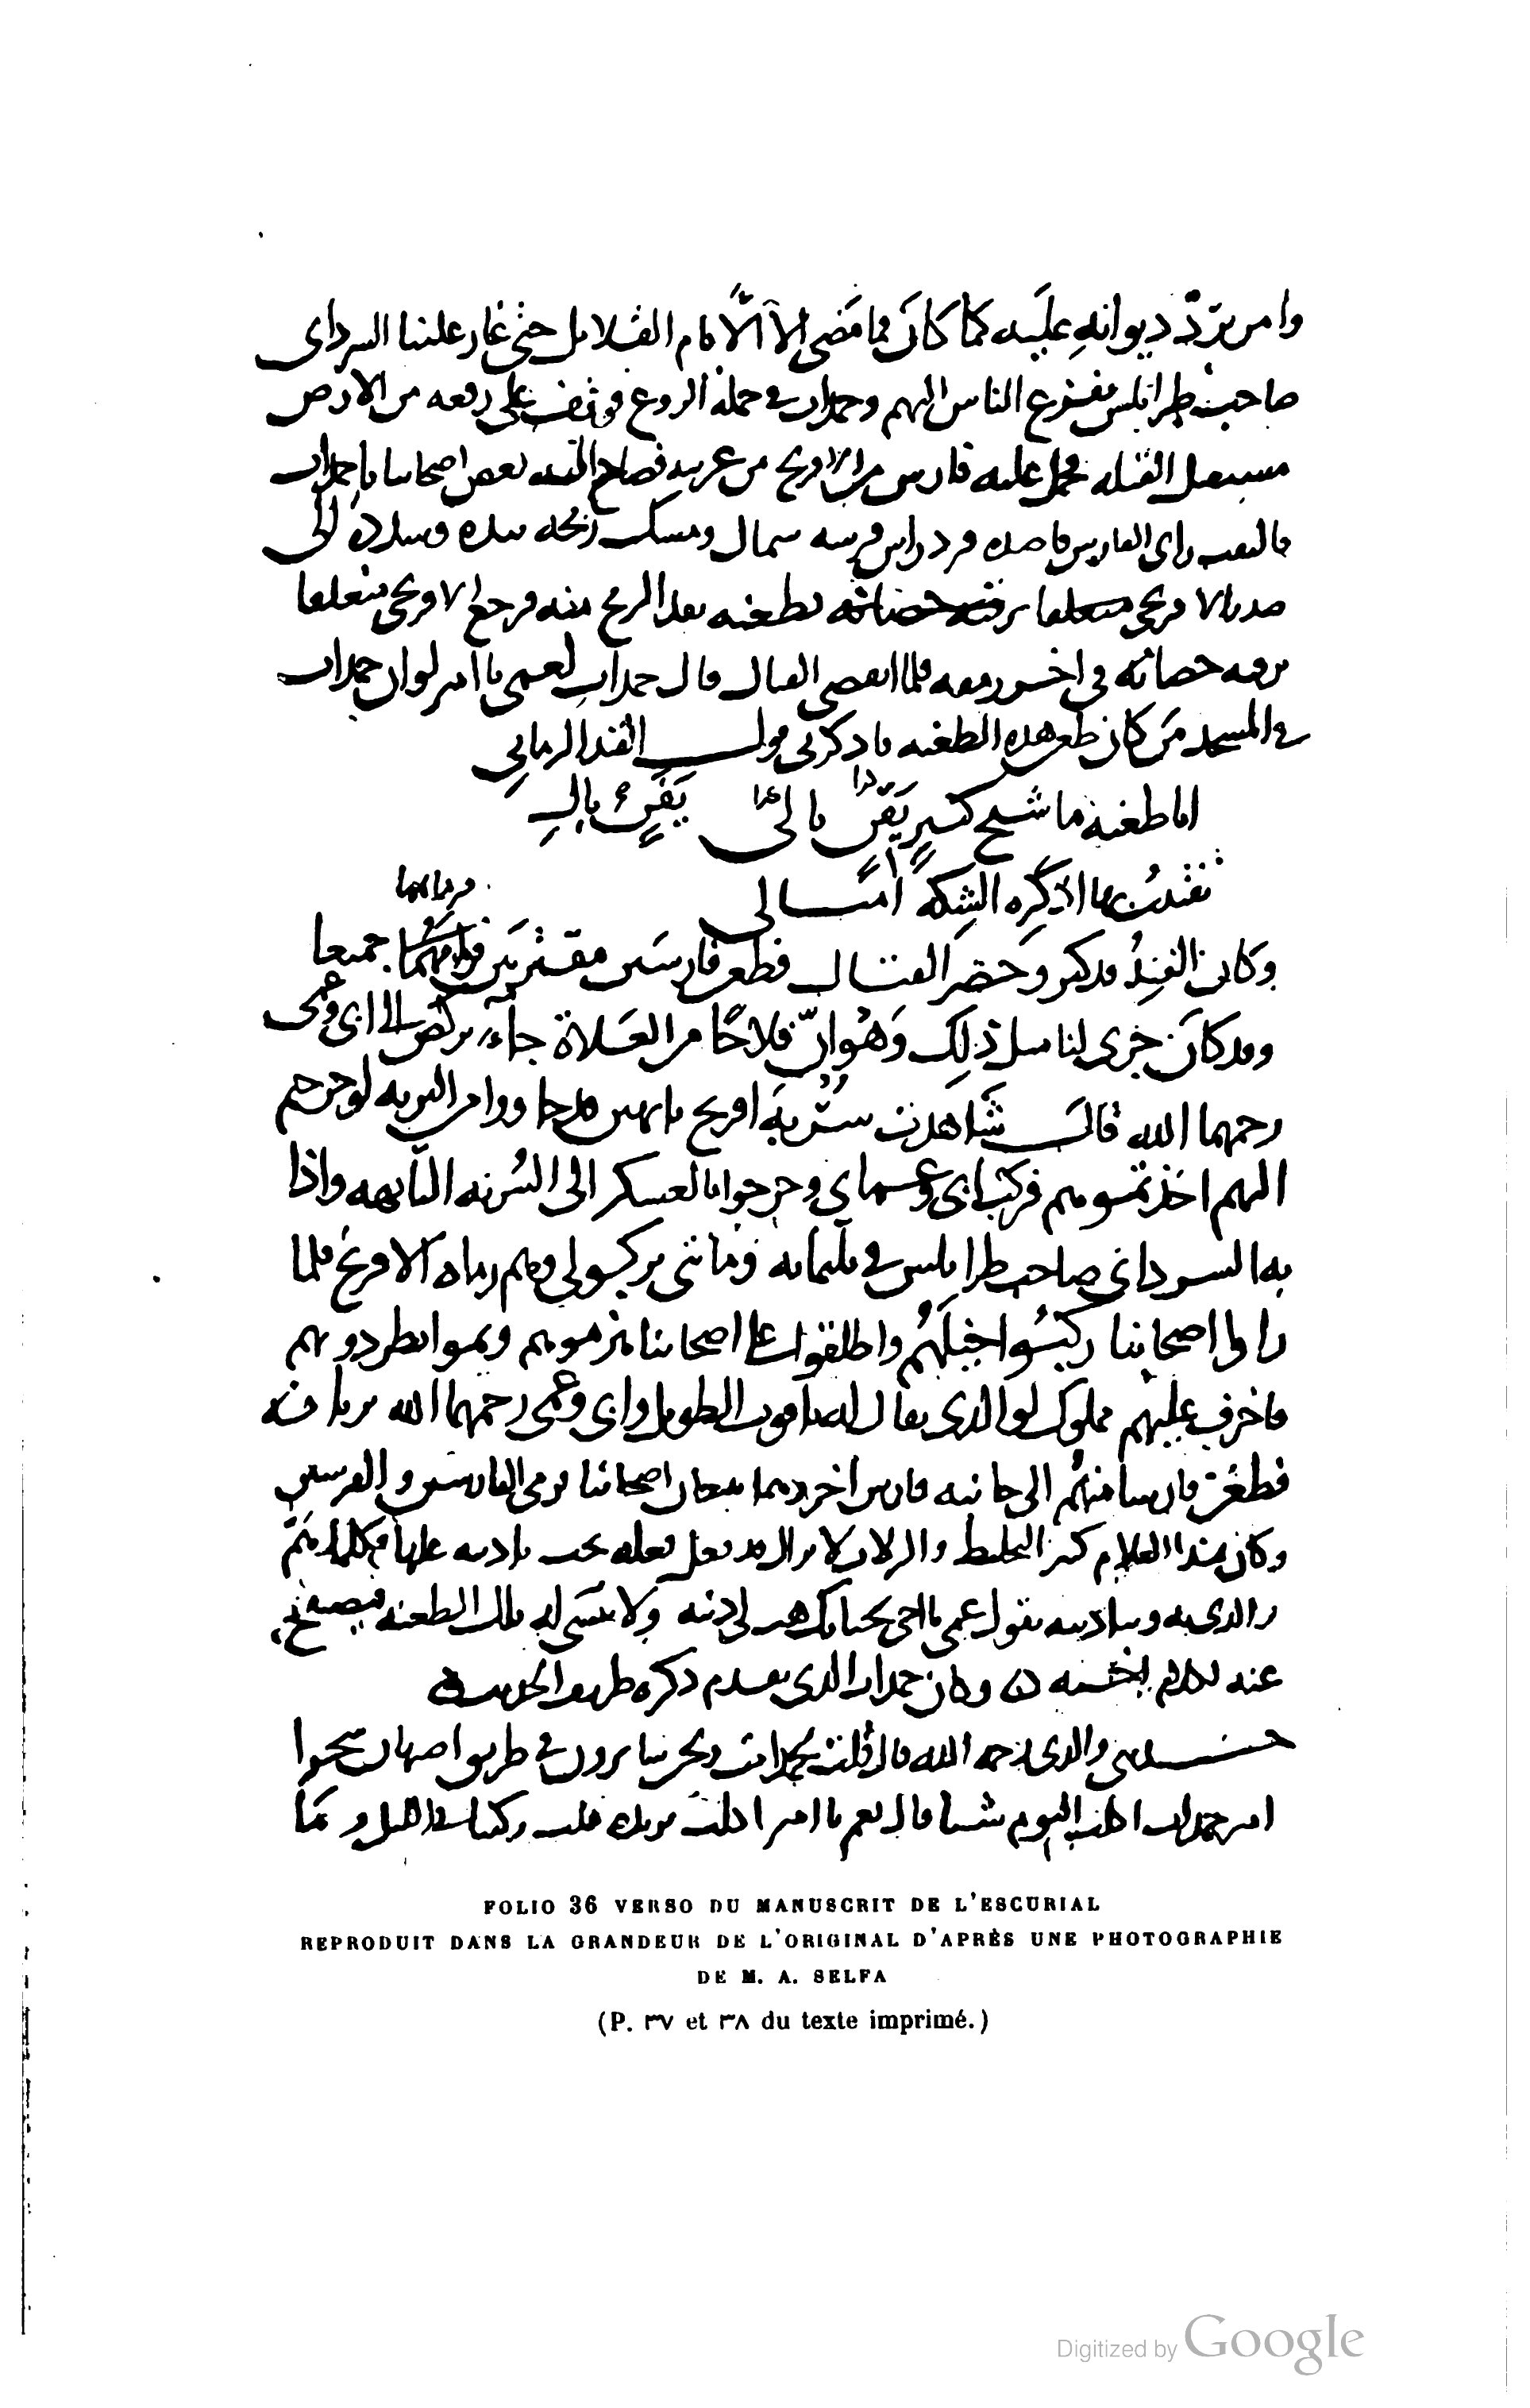 وامر برد ديوانه عليه كما كان فما مضى الا الايام القلايل حتى غار علينا السرداني
صاحب طرابلس ففزع الناس اليهم وحمدات في جملة الروع فوقف على رفعه من الارض
مستقبل القبله فحمل عليه فارس من الافرنج من غربيه فصاح اليه بعض اصحابنا يا حمدات
فالتفت راى الفارس قاصده فرد راس فرسه شمال ومسك رمحه بيده وسدده الى
صدر الافرنجي فطعنه نفذ الرمح منه فرجع الافرنجي متعلقا
برقبه حصانه في اخر رمقه فلما انقضى القتال قال حمدات لعمي يا امير لو ان حمدات
في المسجد من كان طعن هذه الطعنه فاذكرني قول الفند الزماني
ايا طعنة ما شيخ كبير يفن بالي
تفتيت بها اذ كره الشكة امثالي
وكان الفند قد كبر وحضر القتال فطعن فارسين مقترنين فرماهما جميعا
وقد كان جرى لنا مثل ذلك وهو ان فلاحا من العلاة جاء يركض الى ابي وعمي
رحمهما الله قال شاهدت سربة افرنج تايهين قد جاووا من البريه لو خرجتم
اليهم اخذتموهم فركب ابي وعماي وخرجوا بالعسكر الى السربه التايهه واذا
به السرداني صاحب طرابلس في ثلثمايه فارس ومايتي تركبولي وهم رماة الافرنج فلما
راوا اصحابنا ركبوا خيلهم واطلقوا على اصحابنا هزموهم وتموا يطردونهم
فانحرف عليهم مملوك لوالدي يقال له ياقوت الطويل وابي وعمي رحمهما الله يريانه
فطعن فارسا منهم الى جانبه فارس اخر وهما يتبعان اصحابنا فرمى الفارسين والفرسين
وكان هذا الغلام كثير التخليط والزلات لا يزال قد فعل فعله يجب تاديبه عليها فكلما هم
والدي به وبتاديبه يقول عمي يا اخي بحياتك هب لي ذنبه ولا تنسى له تلك الطعنه فيصفح
عنه لكلام اخيه وكان حمدات الذي تقدم ذكره ظريف الحديث
حدثني والدي رحمه الله قال قلت لحمدات ونحن سايرون في طريق اصبهان سحرا
امير حمدات اكلت اليوم شيا قال نعم يا امير اكلت ثريده قلت ركبنا في الليل وما
FOLIO 36 VERSO DU MANUSCRIT DE L'ESCURIAL
REPRODUIT DANS LA GRANDEUR DE L'ORIGINAL D'APRÈS UNE PHOTOGRAPHIE
DE M. A. SELFA
(P. ٣٧ et ٣٨ du texte imprimé.)
Digitized by Google